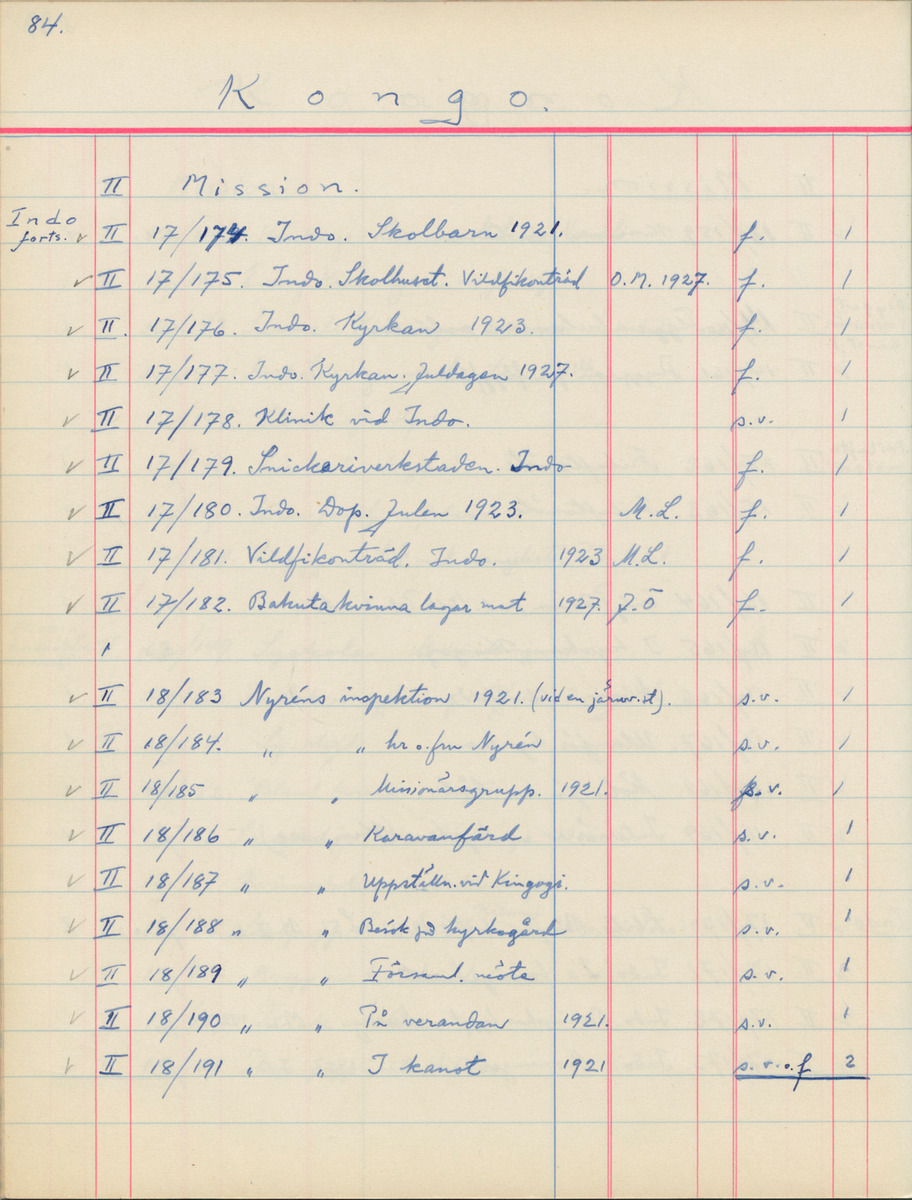 84.
Kongo.
II Mission.
Indo forts. ✓ II 17/174. Indo. Skolbarn 1921. f. 1
✓ II 17/175. Indo. Skolhuset. Vildfikonträd O.M. 1927. f. 1
✓ II. 17/176. Indo. Kyrkan 1923. f. 1
✓ II 17/177. Indo. Kyrkan. Juldagen 1927. f. 1
✓ II 17/178. Klinik vid Indo. s.v. 1
✓ II 17/179. Snickeriverkstaden. Indo f. 1
✓ II 17/180. Indo. Dop. Julen 1923. M.L. f. 1
✓ II 17/181. Vildfikonträd. Indo. 1923 M.L. f. 1
✓ II 17/182. Bakutakvinna lagar mat 1927. J.Ö f. 1
✓ II 18/183 Nyréns inspektion 1921. (vid en järnv.st). s.v. 1
✓ II 18/184. " " hr o. fru Nyrén s.v. 1
✓ II 18/185 " " Missionärsgrupp. 1921. s.v. 1
✓ II 18/186 " " Karavanfärd s.v. 1
✓ II 18/187 " " Uppställn. vid Kingoyi. s.v. 1
✓ II 18/188 " " Besök på kyrkogård s.v. 1
✓ II 18/189 " " Församl. möte s.v. 1
✓ II 18/190 " " På verandan 1921. s.v. 1
✓ II 18/191 " " I kanot 1921 s.v. o. f 2